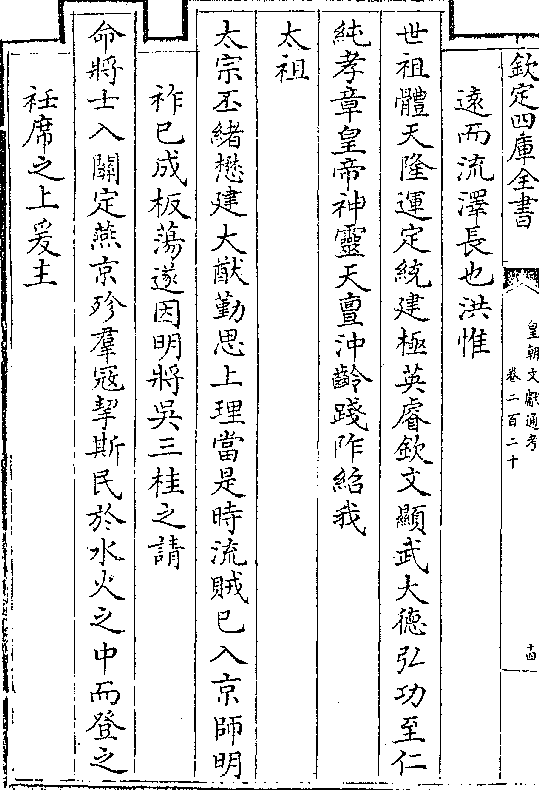 欽定四庫全書
皇朝文獻通考
卷二百二十
十四
遠而流澤長也洪惟
世祖體天隆運定統建極英睿欽文顯武大德弘功至仁
純孝章皇帝神靈天亶沖齡踐阼紹我
太祖
太宗丕緒懋建大猷勤思上理當是時流賊已入京師明
祚已成板蕩遂因明將吳三桂之請
命將士入關定燕京殄羣寇挈斯民於水火之中而登之
衽席之上爰主